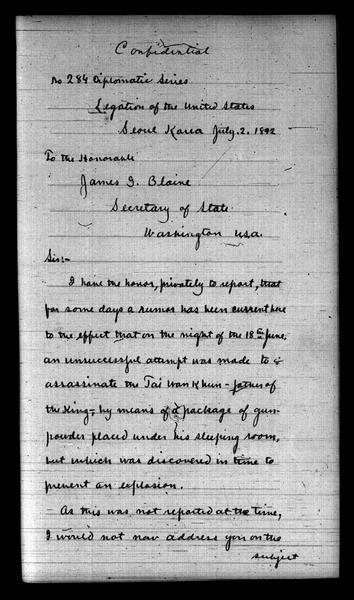 Confidential
No 284 Diplomatic Series.
Legation of the United States
Seoul Korea July. 2. 1892
To the Honorable
James G. Blaine
Secretary of State.
Washington U.S.A.
Sir:-
I have the honor, privately to report, that
for some days a rumor has been current here
to the effect that on the night of the 18th June.
an unsuccessful attempt was made to
assassinate the Tai Wan Khun - father of
the King - by means of a package of gun-
powder placed under his sleeping room,
but which was discovered in time to
prevent an explosion.
As this was not reported at the time,
I would not now address you on the
subject